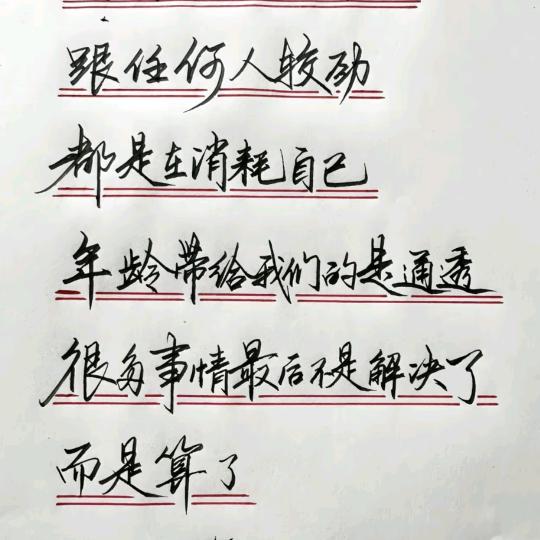 跟任何人较劲
都是在消耗自己
年龄带给我们的是通透
很多事情最后不是解决了
而是算了